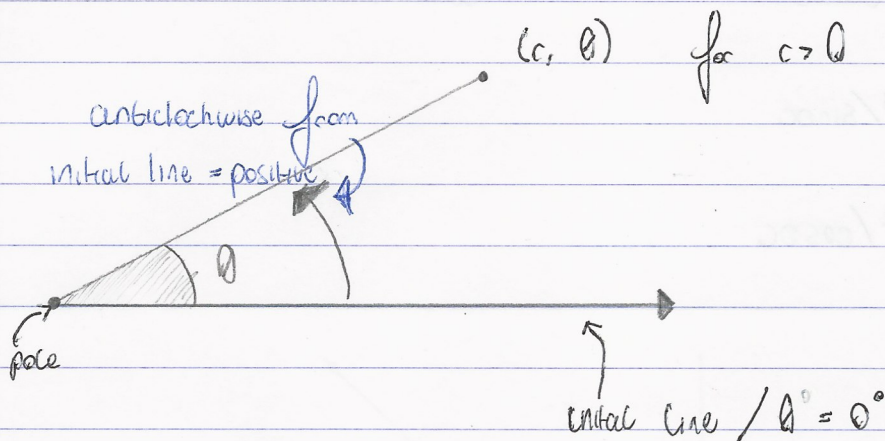 (r, θ) for r > 0
anticlockwise from
initial line = positive
θ
pole
initial line / θ = 0°